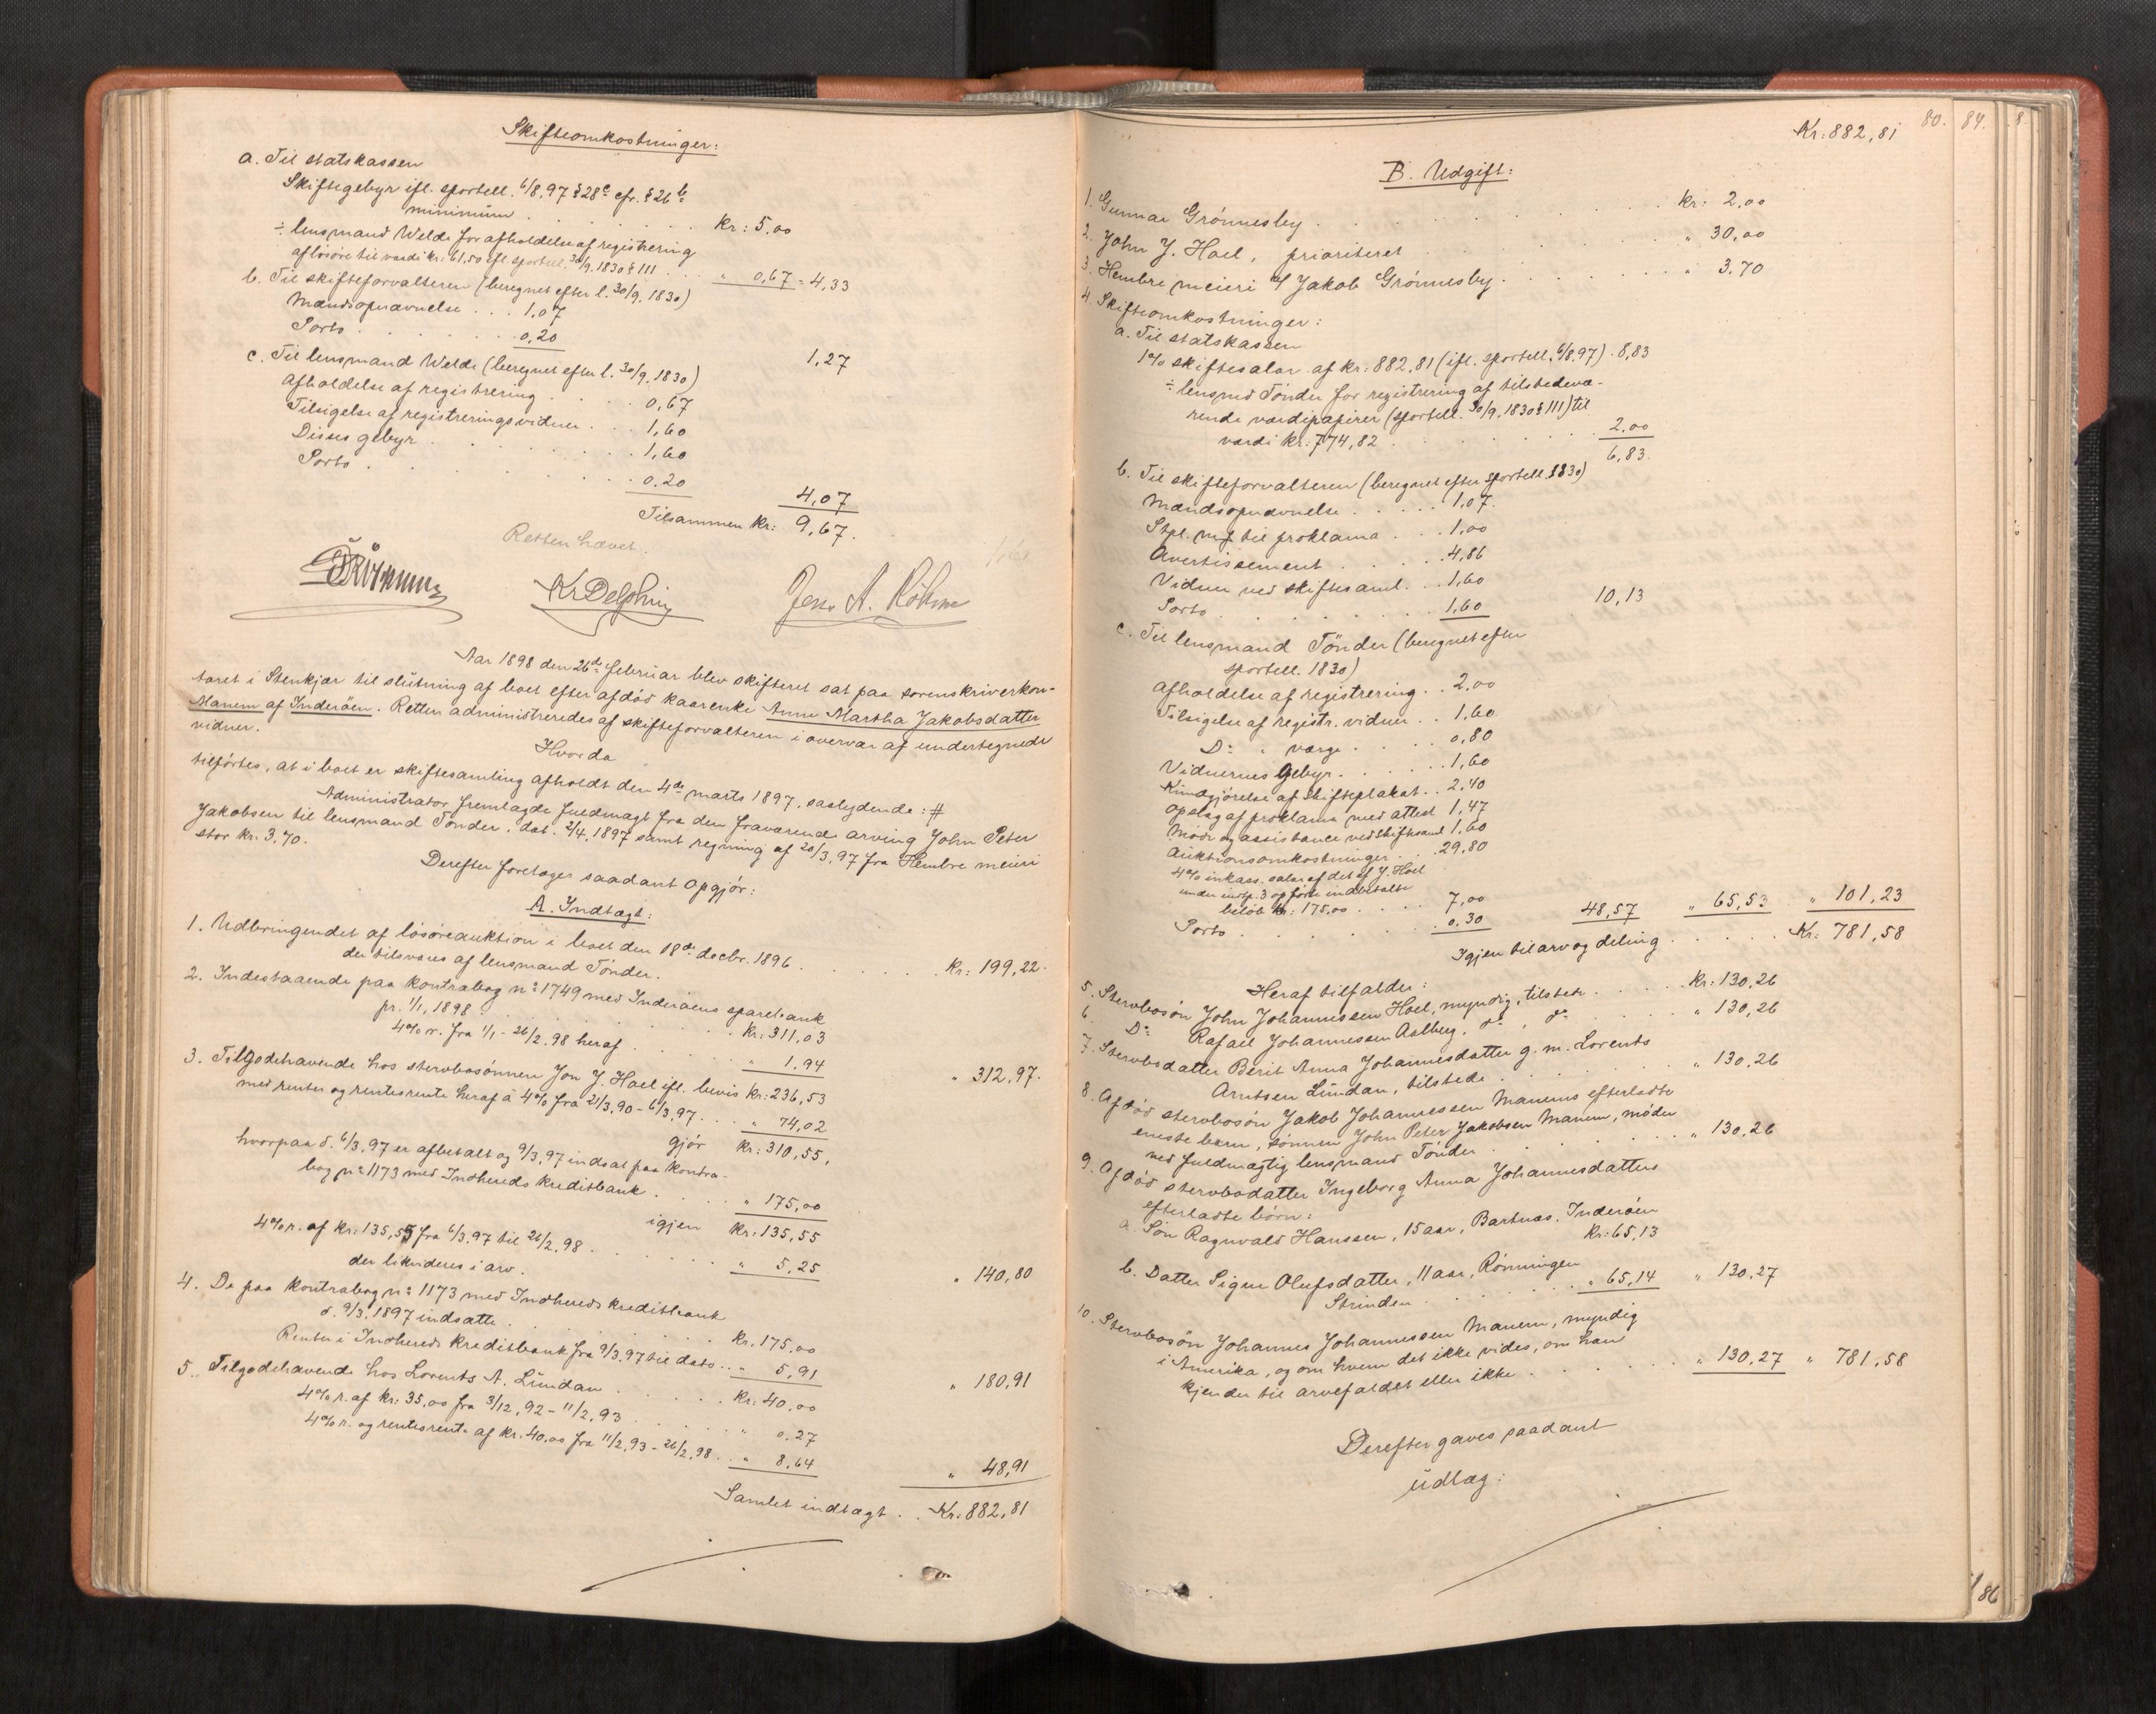 Skifteomkostninger:
a. Til statskassen
Skiftegebyr ifl. sportell. 6/8.97 § 28 c cfr. § 26 b
minimum . . . . . Kr: 5,00
÷ lensmand Welde for afholdelse af registrering
af løsøre til værdi kr: 61,50 ifl. sportell. 30/9.1830 § 111 . . . " 0,67 = 4,33
b. Til skifteforvalteren (beregnet efter l. 30/9.1830)
Mandsopnævnelse . . . 1,07
Porto . . . . . 0,20
1,27
c. Til lensmand Welde (beregnet efter l. 30/9.1830)
Afholdelse af registrering . . . . 0,67
Tilsigelse af registreringsvidner . . 1,60
Disses gebyr . . . . . 1,60
Porto . . . . . 0.20
4,07
Tilsammen Kr: 9,67.
Retten hævet.
Kr Delphin
Jens A. Röhme
Aar 1898 den 26de februar blev skifteret sat paa sorenskriverkon-
toret i Stenkjær til slutning af boet efter afdød kaarenke Anne Martha Jakobsdatter
Manem af Inderøen. Retten administreredes af skifteforvalteren i overvær af undertegnede
vidner.
Hvorda
tilførtes, at i boet er skiftesamling afholdt den 4de marts 1897, saalydende: #
Administrator fremlagde fuldmagt fra den fraværende arving John Peter
Jakobsen til lensmand Tønder, dat. 2/4.1897 samt regning af 20/3.97 fra Hembre meieri
stor kr. 3,70.
Derefter foretages saadant Opgjør:
A. Indtægt:
1. Udbringendet af løsøreauktion i boet den 18de decbr. 1896 . . . . . Kr: 199,22.
der tilsvares af lensmand Tønder.
2. Indestaaende paa Kontrabog no 1749 med Inderøens sparebank
pr. 1/1, 1898 . . . . . Kr: 311,03
4% r. fra 1/1 - 26/2.98 heraf . . . . " 1.94
" 312,97.
3. Tilgodehavende hos stervbosønnen Jon J. Hoel ifl. bevis Kr: 236,53
med renter og rentesrente heraf à 4% fra 21/3.90 - 6/3.97 . . . " 74,02
gjør Kr: 310,55,
hvorpaa d. 6/3.97 er afbetalt og 9/3.97 indsat paa Kontra-
bog no 1173 med Indhereds kreditbank . . . . " 175,00
igjen Kr: 135,55
4% r. af kr: 135,55 fra 6/3.97 til 26/2.98 . . . . " 5,25
der likvideres i arv.
" 140,80
4. De paa Kontrabog no 1173 med Indhereds kreditbank
d. 9/3.1897 indsatte . . . . . Kr. 175,00
Renter i Indhereds kreditbank fra 9/3.97 til dato . . " 5,91
" 180,91
5. Tilgodehavende hos Lorents A. Lundan . . . . . Kr: 40,00
4% r. af kr: 35,00 fra 3/12.92 - 11/2.93 . . . . " 0.27
4% r. og rentesrente af kr. 40.00 fra 11/2.93 - 26/2.98 . . " 8,64
" 48,91
Samlet indtægt . . Kr: 882,81
80. 84. 8
Kr: 882,81
B. Udgift:
1. Gunnar Grønnesby . . . . . Kr: 2,00
2. John J. Hoel, prioriteret . . . . . " 30,00
3. Hembre meieri v/ Jakob Grønnesby . . . . . " 3.70
4. Skifteomkostninger:
a. Til statskassen
1% skiftesalær af kr: 882,81 (ifl. sportell. 6/8.97) . 8,83
÷ lensmd Tønder for registrering af tilstedevæ-
rende værdipapirer (sportell. 30/9.1830 § 111) til
værdi kr: 774,82 . . . . . 2,00
6,83.
b. Til skifteforvalteren (beregnet efter sportell. 1830)
Mandsopnævnelse . . . . . 1,07.
Stpl. m/ til proklama . . . 1,00
Avertissement . . . . 4,86
Vidner ved skiftesaml. . . 1,60
Porto . . . . . 1,60
10,13
c. Til lensmand Tønder (beregnet efter
sportell. 1830)
Afholdelse af registrering . . 2,00
Tilsigelse af registr. vidner . . 1,60
Do " værge . . . . 0,80
Vidnernes Gebyr . . . . 1,60
Kundgjørelse af skifteplakat . . 2,40
Opslag af proklama med attest 1,47
Møde og assistance ved skiftsaml 1,60
Auktionsomkostninger . . . 29,80
4% inkass. salær af det af J. Hoel
under indtp. 3 opførte indbetalte
beløb kr: 175,00 . . . . 7,00
Porto . . . . . 0.30
48,57 " 65,53 " 101,23
Igjen til arv og deling . . . . . Kr: 781,58
Heraf tilfalder:
5. Stervbosøn John Johannessen Hoel, myndig, tilstede . . . . Kr: 130,26
6. Do Rafael Johannessen Aalberg, do, do . . . . " 130,26
7. Stervbodatter Berit Anna Johannesdatter g. m. Lorents
Arntsen Lundan, tilstede . . . . . " 130,26
8. Afdød stervbosøn Jakob Johannessen Manems efterladte
eneste barn, sønnen John Peter Jakobsen Manem, møder
ved fuldmægtig lensmand Tønder . . . . . " 130,26
9. Afdød stervbodatter Ingeborg Anna Johannesdatters
efterladte børn:
a. Søn Ragnvald Hanssen, 15 aar, Bartnæs, Inderøen
Kr: 65,13
b. Datter Signe Olufsdatter, 11 aar, Rønningen
Strinden . . . . . " 65,14 " 130,27
10. Stervbosøn Johannes Johannessen Manem, myndig
i Amerika, og om hvem det ikke vides, om han
kjender til arvefaldet eller ikke . . . . . " 130,27 " 781,58
Derefter gaves saadant
udlæg:
86